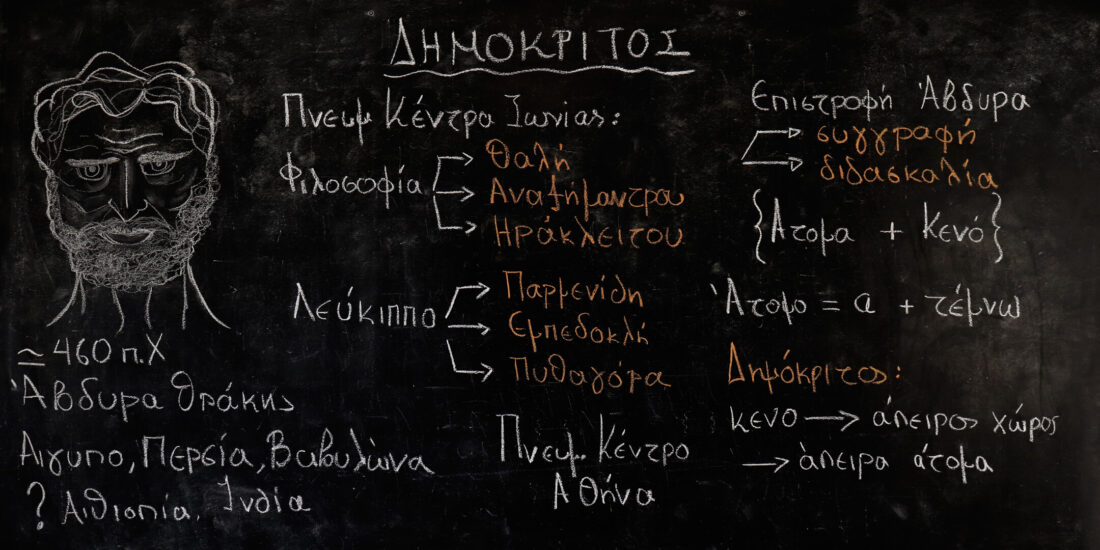 ΔΗΜΟΚΡΙΤΟΣ
≃ 460 π.Χ
Άβδυρα Θράκης
Αιγυπο, Περσία, Βαβυλώνα
? Αιθιοπία, Ινδία
Πνευμ Κέντρα Ιωνίας:
Φιλοσοφία
Θαλή
Αναξήμαντρου
Ηράκλειτου
Λεύκιππο
Παρμενίδη
Εμπεδοκλή
Πυθαγόρα
Πνευμ. Κέντρο
Αθήνα
Επιστροφή Άβδυρα
συγγραφή
διδασκαλία
{Ατομα + Κενό}
Άτομο = α + τέμνω
Δημόκριτος:
κενο → άπειρος χώρος
→ άπειρα άτομα